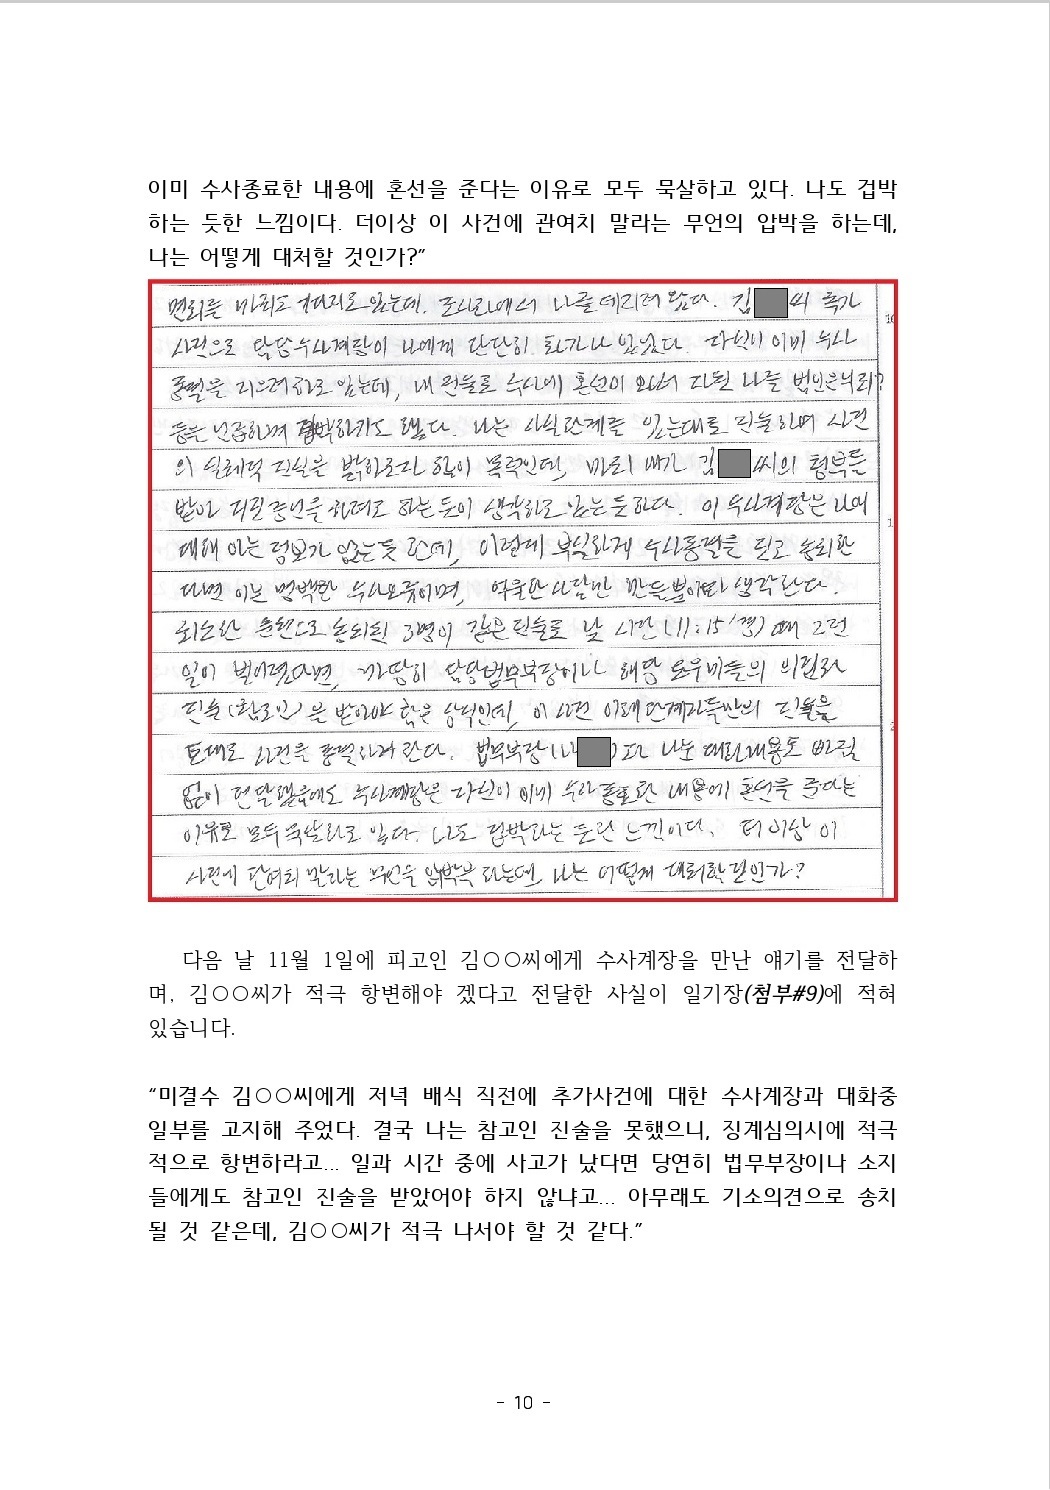 이미 수사종료한 내용에 혼선을 준다는 이유로 모두 묵살하고 있다. 나도 겁박
하는 듯한 느낌이다. 더이상 이 사건에 관여치 말라는 무언의 압박을 하는데,
나는 어떻게 대처할 것인가?”
면회를 마치고 거지로 있는데, 조사과에서 나를 데리러 왔다. 김 씨 추가
사건으로 담당수사계장이 나에게 단단히 화가나 있었다. 자신이 이미 수사
종결을 지으려하고 있는데, 내 진술로 수사에 혼선이 와서 진짜 나를 범인은닉죄?
등을 언급하며 겁박하기도 했다. 나는 사실관계를 있는대로 진술하며 사건
의 실체적 진실을 밝히고자 함이 목적인데, 마치 내가 김 씨의 청부를
받아 위증을 하려고 하는 듯이 생각하고 있는 듯하다. 이 수사계장은 나에
대해 아는 정보가 없는 듯 한데, 이렇게 부실하게 수사종결을 짓고 송치한
다면 이는 명백한 수사오류이며, 억울한 사람만 만들뿐이라 생각한다.
최소한 순천으로 송치된 3명이 같은 진술로 낮 시간(11:15'경) 때 그런
일이 벌어졌다면, 마땅히 담당법무부장이나 해당 도우미들의 의견과
진술(참고인)을 받아야 함은 상식인데, 이 사건 이해관계자들만의 진술을
토대로 사건을 종결하려 한다. 법무부장(나 )과 나눈 대화내용도 빠짐
없이 전달했음에도 수사계장은 자신이 이미 수사종료한 내용에 혼선을 준다는
이유로 모두 묵살하고 있다. 나도 겁박하는 듯한 느낌이다. 더이상 이
사건에 관여치 말라는 무언의 압박을 하는데, 나는 어떻게 대처할 것인가?
다음 날 11월 1일에 피고인 김○○씨에게 수사계장을 만난 얘기를 전달하
며, 김○○씨가 적극 항변해야 겠다고 전달한 사실이 일기장(첨부#9)에 적혀
있습니다.
“미결수 김○○씨에게 저녁 배식 직전에 추가사건에 대한 수사계장과 대화중
일부를 고지해 주었다. 결국 나는 참고인 진술을 못했으니, 징계심의시에 적극
적으로 항변하라고... 일과 시간 중에 사고가 났다면 당연히 법무부장이나 소지
들에게도 참고인 진술을 받았어야 하지 않냐고... 아무래도 기소의견으로 송치
될 것 같은데, 김○○씨가 적극 나서야 할 것 같다.”
- 10 -